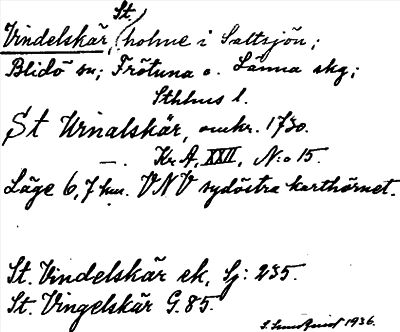 St.
Vindelskär, (holme i Saltsjön;
Blidö sn; Frötuna o. Länna skg;
Sthlms l.
St Urnalskär, omkr. 1730.
—. Kr. A, XXII, N:o 15.
Läge 6,7 km. VNV sydöstra karthörnet.
St. Vindelskär ek, Sj: 235.
St. Vingelskär G. 85.
1936.